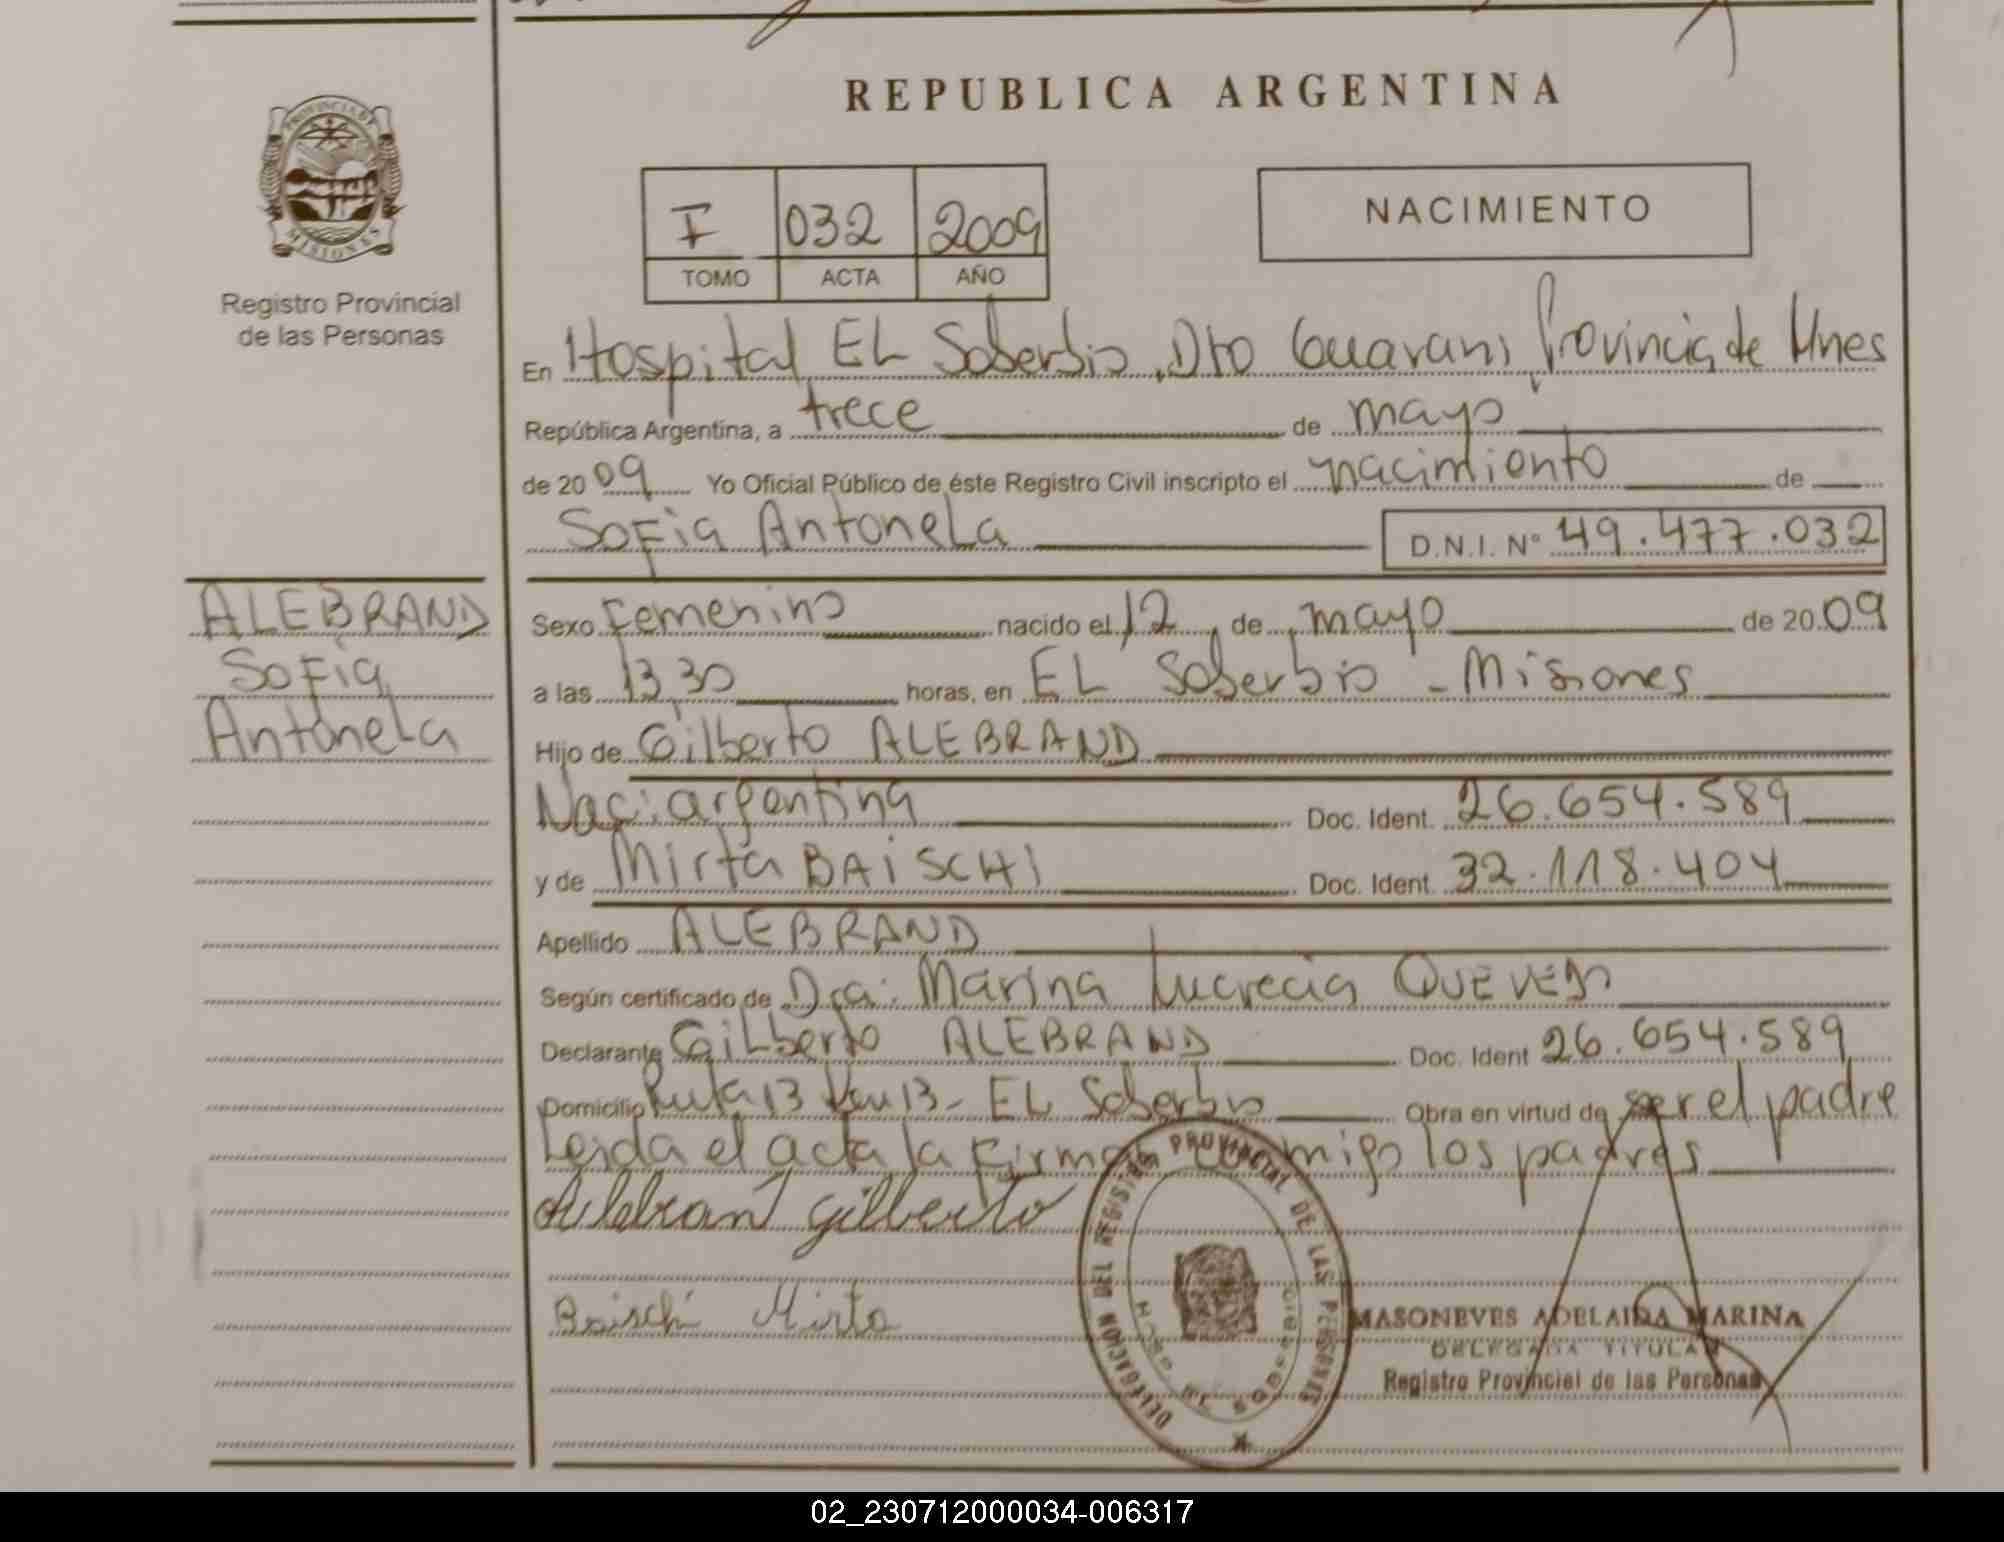 REPUBLICA ARGENTINA
PROVINCIA DE
MISIONES
Registro Provincial
de las Personas
I 032 2009
TOMO ACTA AÑO
NACIMIENTO
En Hospital EL Soberbio, Dto Guarani, Provincia de Mnes
República Argentina, a trece de mayo
de 2009 Yo Oficial Público de éste Registro Civil inscripto el nacimiento de
Sofia Antonela D.N.I. Nº 49.477.032
ALEBRAND
Sofia
Antonela
Sexo Femenino nacido el 12 de mayo de 2009
a las 13,30 horas, en EL Soberbio - Misiones
Hijo de Gilberto ALEBRAND
Nac: argentina Doc. Ident. 26.654.589
y de Mirta BAISCHI Doc. Ident. 32.118.404
Apellido ALEBRAND
Según certificado de Dra: Marina Lucrecia QUEVEDO
Declarante GiLberto ALEBRAND Doc. Ident 26.654.589
Domicilio Ruta 13 Km 13 - EL Soberbio Obra en virtud de ser el padre
Leida el acta la firman conmigo los padres
Alebran gilberto
Baischi Mirta
DELEGACION DEL REGISTRO PROVINCIAL DE LAS PERSONAS
MASONEVES ADELAIDA MARINA
DELEGADA TITULAR
Registro Provincial de las Personas
02_230712000034-006317